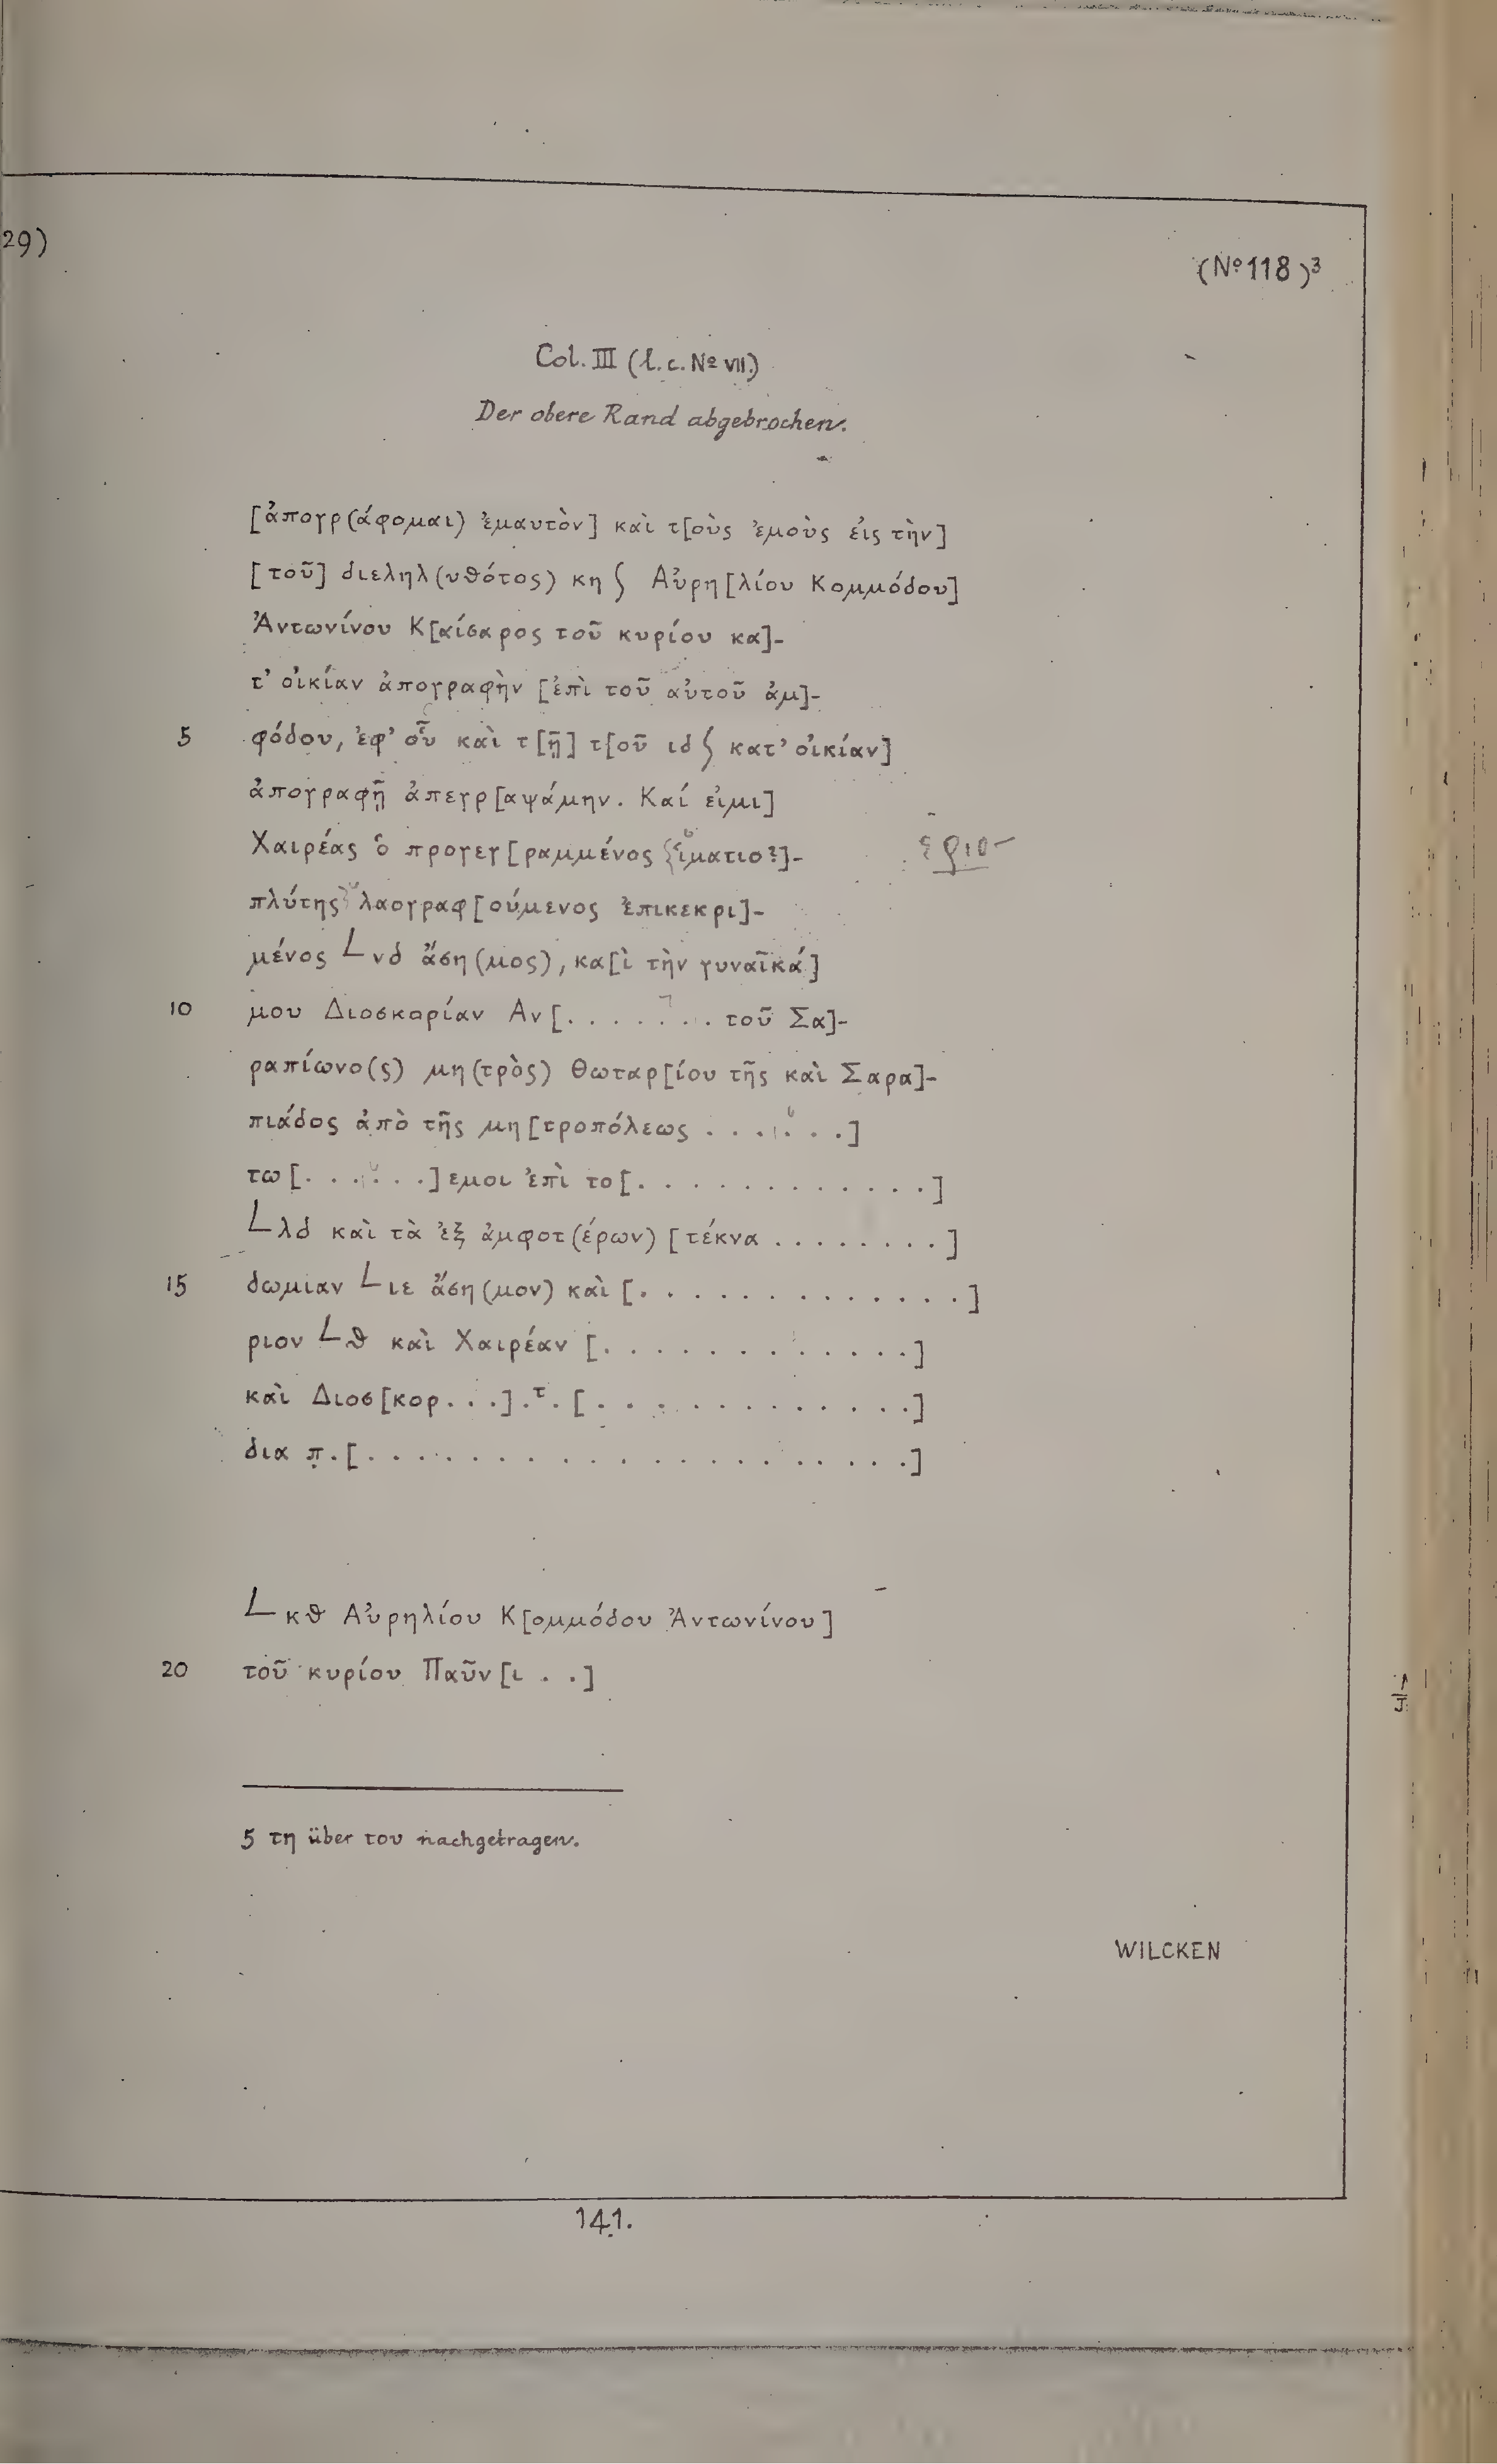 29)
(Nº 118)³
Col. III (l. c. Nº VII.)
Der obere Rand abgebrochen.
[ἀπογρ(άφομαι) ἐμαυτὸν] καὶ τ[οὺς ἐμοὺς εἰς τὴν]
[τοῦ] διεληλ(υθότος) κη ʃ Αὐρη[λίου Κομμόδου]
Ἀντωνίνου Κ[αίσαρος τοῦ κυρίου κα]-
τ’ οἰκίαν ἀπογραφὴν [ἐπὶ τοῦ αὐτοῦ ἀμ]-
5 φόδου, ἐφ’ οὗ καὶ τ[ῇ] τ[οῦ ιδ ʃ κατ’ οἰκίαν]
ἀπογραφῇ ἀπεγρ[αψάμην. Καί εἰμι]
Χαιρέας ὁ προγεγ[ραμμένος ἱματιο?]- ἐριο-
πλύτης λαογραφ[ούμενος ἐπικεκρι]-
μένος L νδ ἄση(μος), κα[ὶ τὴν γυναῖκά]
10 μου Διοσκορίαν Αν[. . . . . . . τοῦ Σα]-
ραπίωνο(ς) μη(τρὸς) Θωταρ[ίου τῆς καὶ Σαρα]-
πιάδος ἀπὸ τῆς μη[τροπόλεως . . . . . .]
τω[. . . . . .]εμοι ἐπὶ το[. . . . . . . . . . . .]
L λδ καὶ τὰ ἐξ ἀμφοτ(έρων) [τέκνα . . . . . . . .]
15 δωμιαν L ιε ἄση(μον) καὶ [. . . . . . . . . . . . .]
ριον L θ καὶ Χαιρέαν [. . . . . . . . . . . .]
καὶ Διοσ[κορ. . .].τ.[. . . . . . . . . . . . .]
δια π̣.[. . . . . . . . . . . . . . . . . . . . .]
L κθ Αὐρηλίου Κ[ομμόδου Ἀντωνίνου]
20 τοῦ κυρίου Παῦν[ι . .]
5 τη über του nachgetragen.
WILCKEN
141.